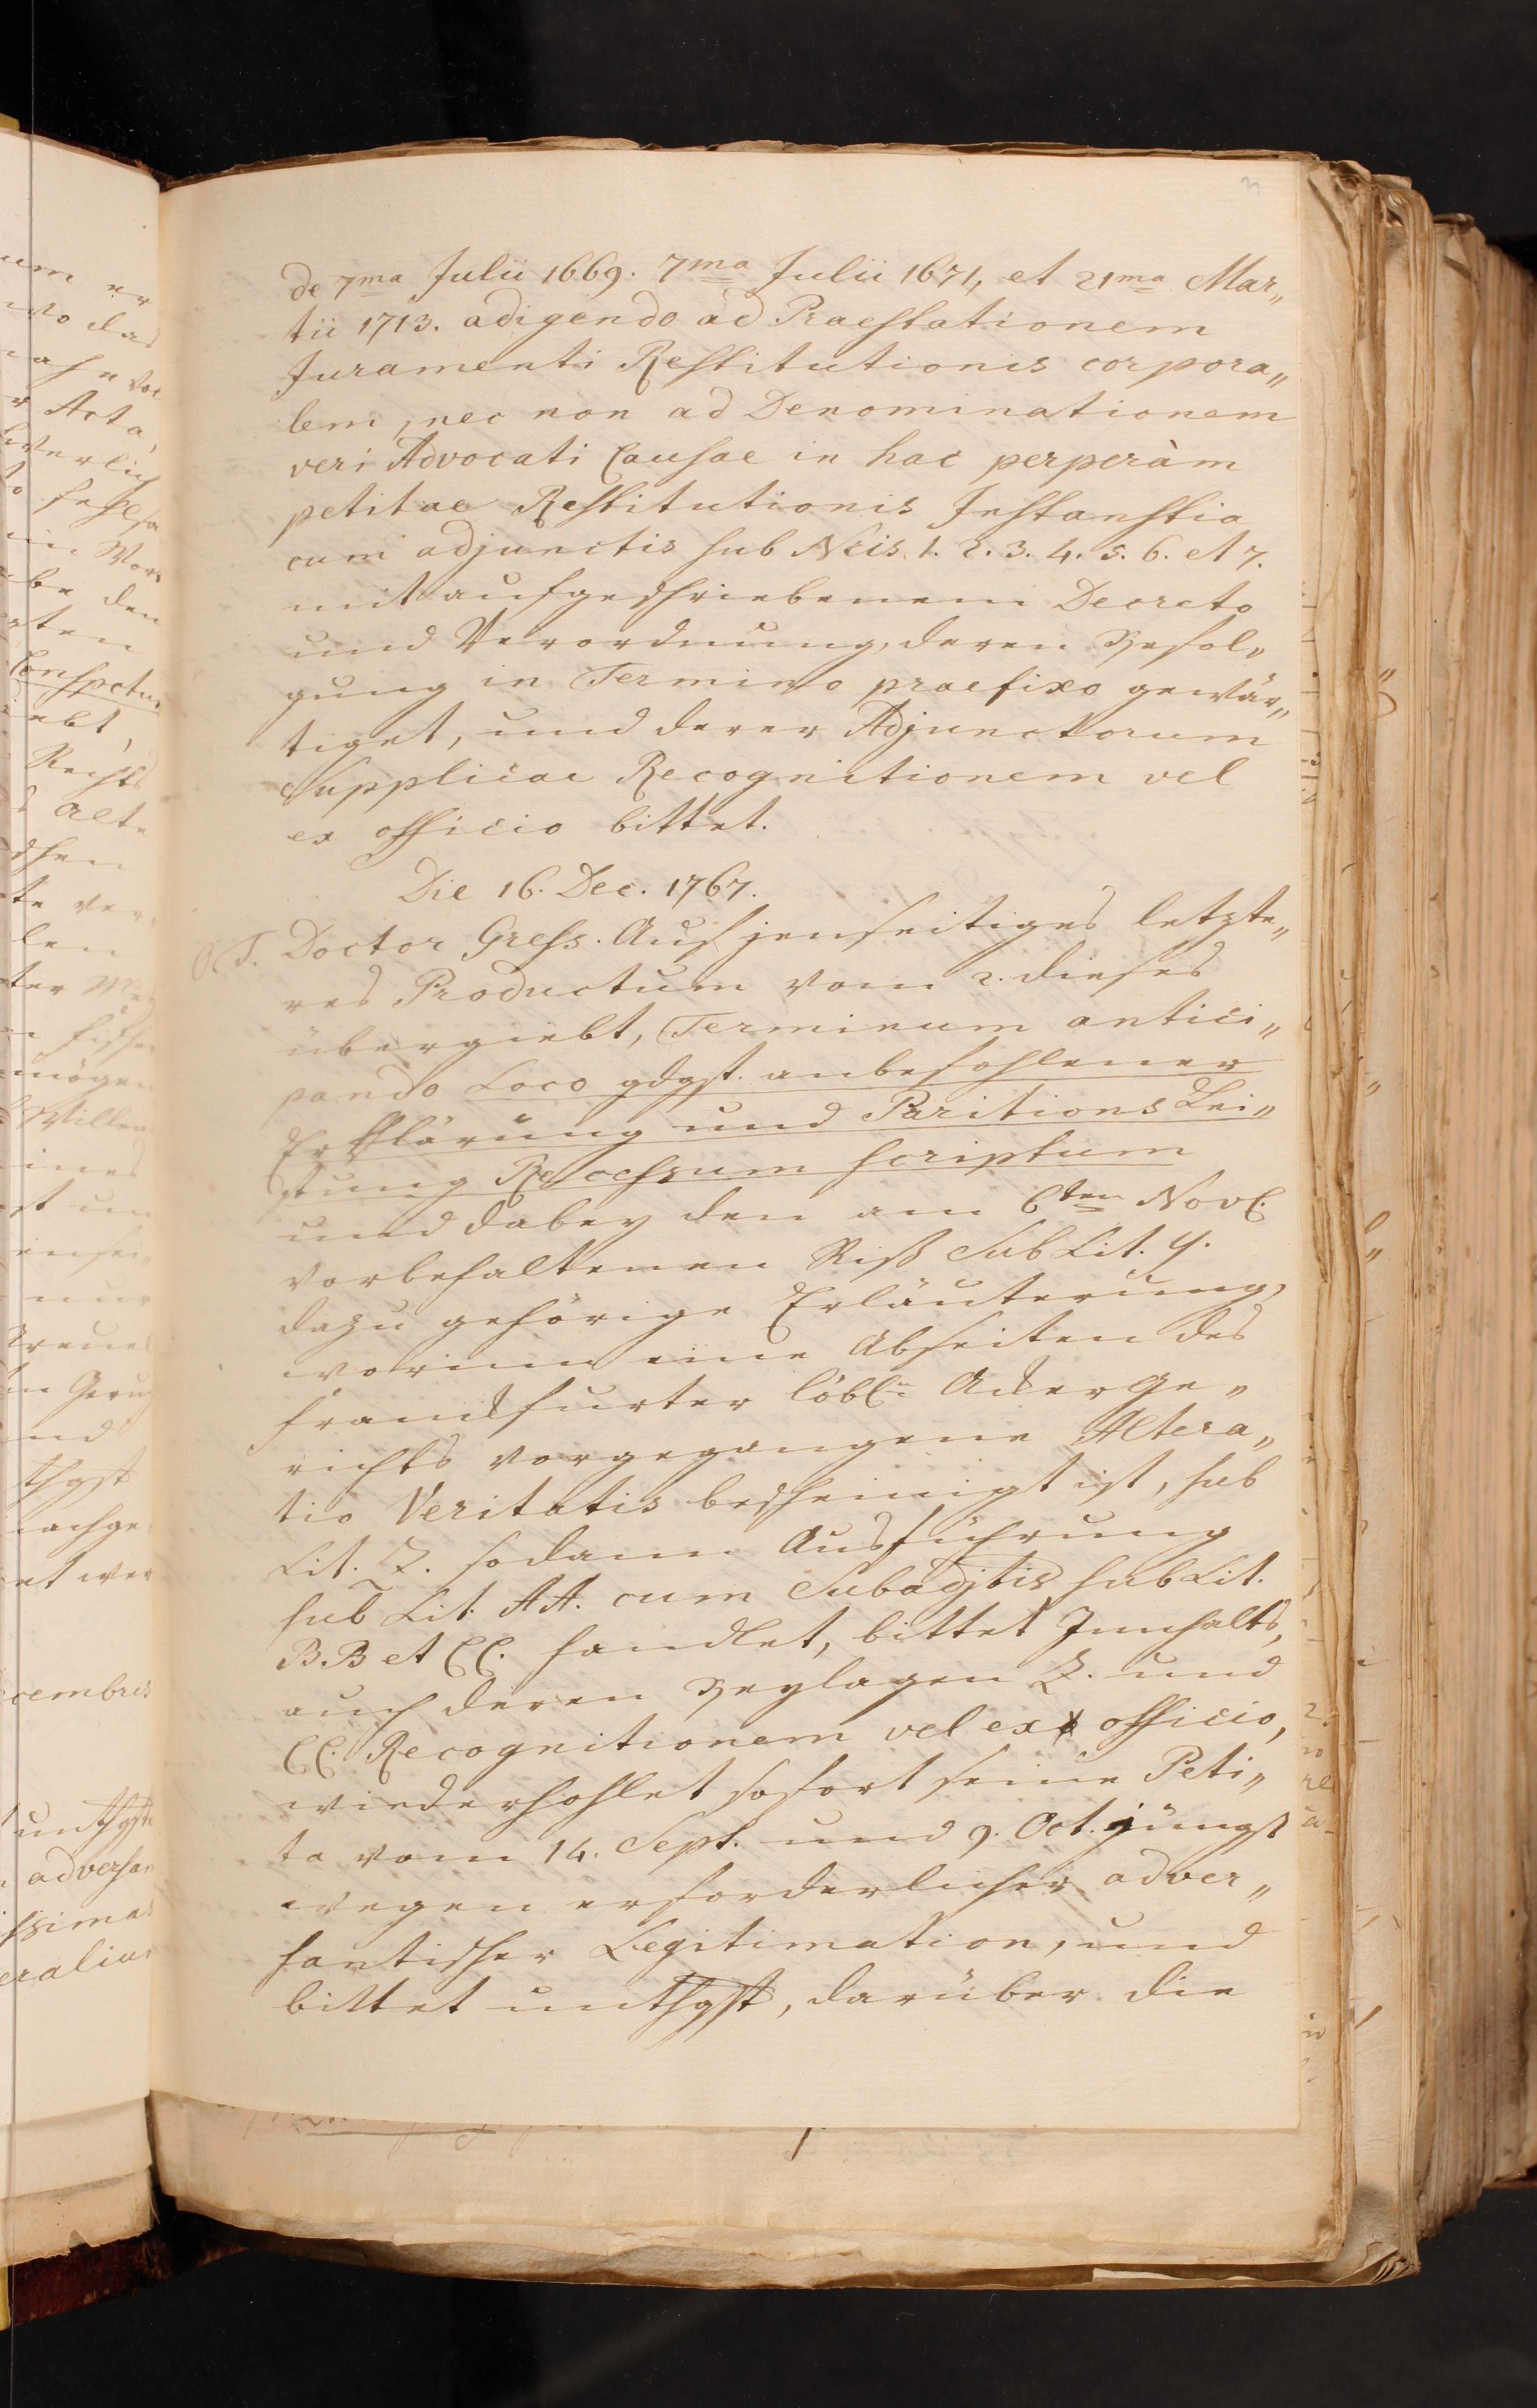 de 7ma Julii 1669. 7ma Julii 1671, et 21ma Mar„
tii 1713. adigendo ad Praestationem
Juramenti Restitutionis corpora„
lem, nec non ad Denominationem
veri Advocati Causae in hac perperàm
petitae Restitutionis Instanstia
cum adjunctis sub Nris 1. 2. 3. 4. 5. 6. et 7.
mit aufgeschriebenem Decreto
und Verordnung, deren Befol„
gung in Termino praefixo gewär„
tiget, und derer Adjunctorum
Supplicae Recognitionem vel
ex officio bittet.
Die 16. Dec. 1767.
O. T. Doctor Gress. Auf jenseitiges letzte„
res Productum vom 2. dieses
übergiebt, Terminum antici„
pando Loco gdgst. anbefohlener
Erklärung und Paritions Lei„
stung Recessum scriptum
und dabey den am 6ten Nov.
vorbehaltenen Riß Sub Lit. Y.
dazu gehörige Erläuterung,
worinn eine Abseiten des
franckfurter löbl. Ackerge„
richts vorgegangene Altera„
tio Veritatis bescheinigt ist, sub
Lit. Z. sodann Ausführung
sub Lit. AA. cum Subadjtis sub Lit.
B.B et CC. handlet, bittet Innhalts,
auch deren Beylagen Z. und
CC. Recognitionem vel ex officio,
wiederhohlet sofort seine Peti„
ta vom 14. Sept. und 9. Oct. jüngst
wegen erforderlicher adver„
santischer Legitimation, und
bittet unthgst, darüber die